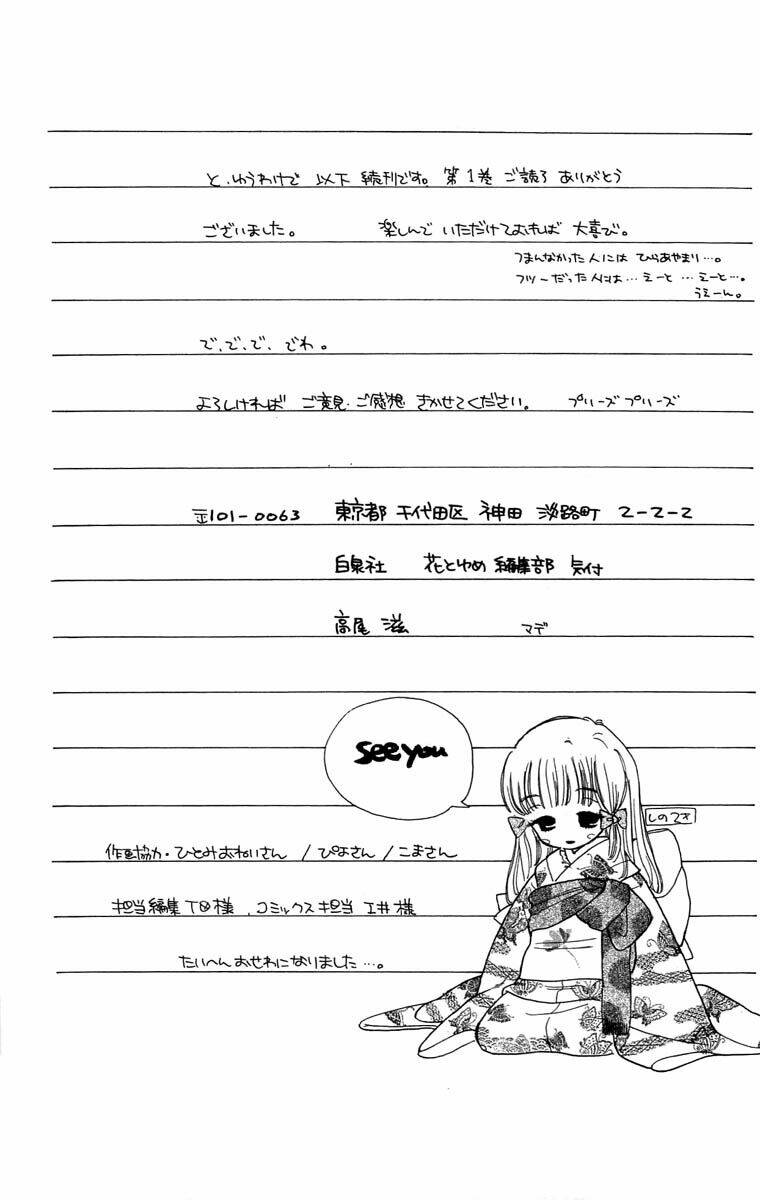 と、ゆうわけで 以下 続刊です。第1巻 ご読了 ありがとう
ございました。 楽しんで いただけておれば 大喜び。
つまんなかった人には ひらあやまり…。
フツーだった人には… えーと …えーと…。
うえーん。
で、で、で、でわ。
よろしければ ご意見・ご感想 きかせてください。 プリーズプリーズ
〒101-0063 東京都 千代田区 神田 淡路町 2-2-2
白泉社 花とゆめ 編集部 気付
高尾 滋 マデ
see you
しのてさ
作画協力・ひとみおねいさん /ぴよさん /こまさん
担当編集 T 様、コミックス担当 工井様
たいへんおせわになりました…。